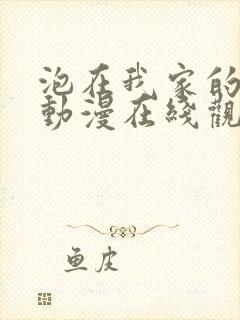 泡在我家的
動漫在綫觀
鱼皮